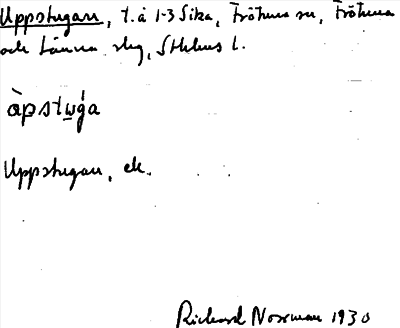 Uppstugan, t. å 1-3 Sika, Frötuna sn, Frötuna
och Länna slg, Sthlms l.
àpstu̲ǵa
Uppstugan, ek.
Richard Norrman 1930